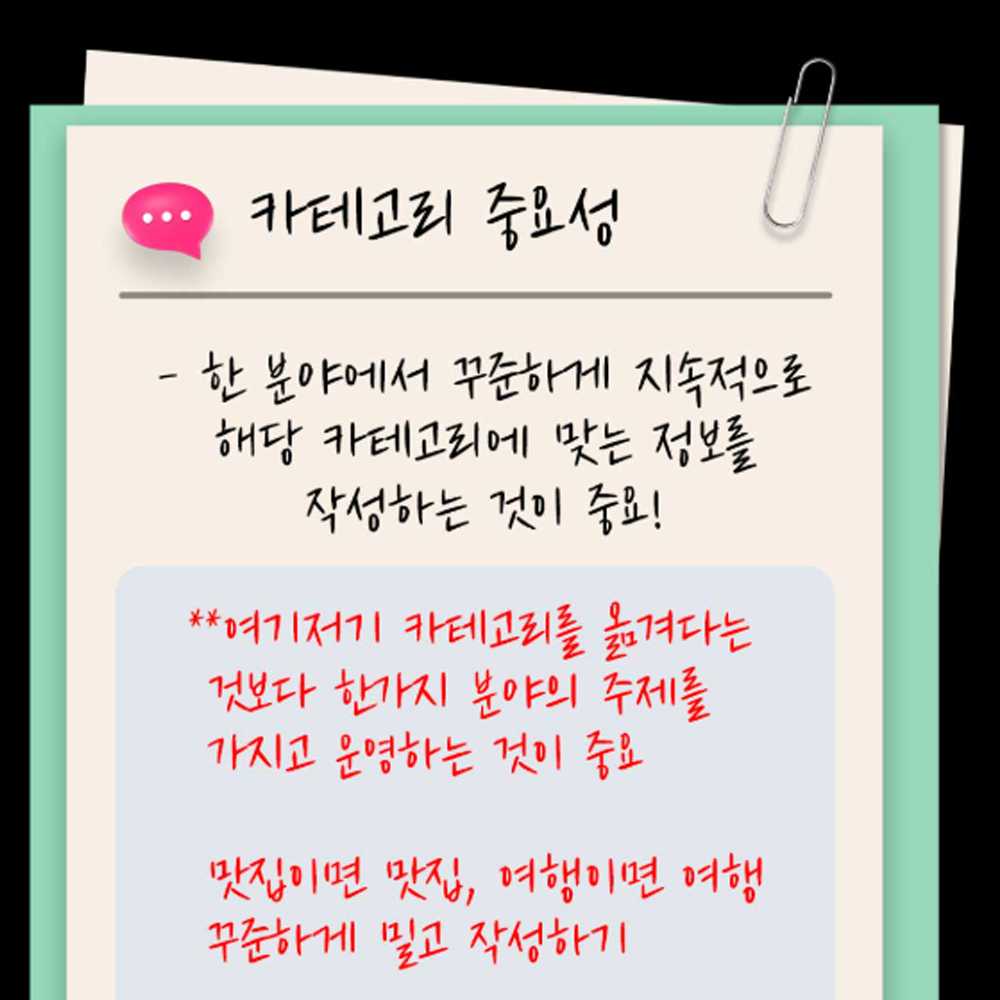 카테고리 중요성
- 한 분야에서 꾸준하게 지속적으로
해당 카테고리에 맞는 정보를
작성하는 것이 중요!
**여기저기 카테고리를 옮겨다는
것보다 한가지 분야의 주제를
가지고 운영하는 것이 중요
맛집이면 맛집, 여행이면 여행
꾸준하게 밀고 작성하기